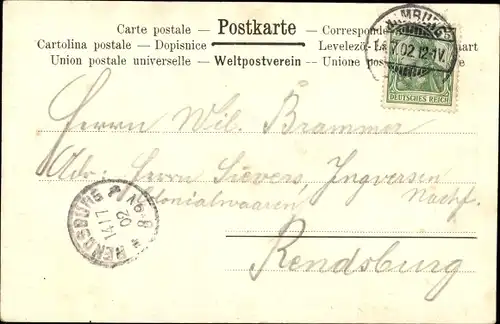 Carte postale — Postkarte — Correspond
Cartolina postale — Dopisnice Levelező-L
Union postale universelle — Weltpostverein — Unione posta
MBURG
7.02.12-1V.
DEUTSCHES REICH
Herrn Wil. Brammer
Adr: Herrn Sievers, Ingversen
Colonialwaaren Nachf.
Rendsburg
RENDSBURG
14/7
02
8-9V